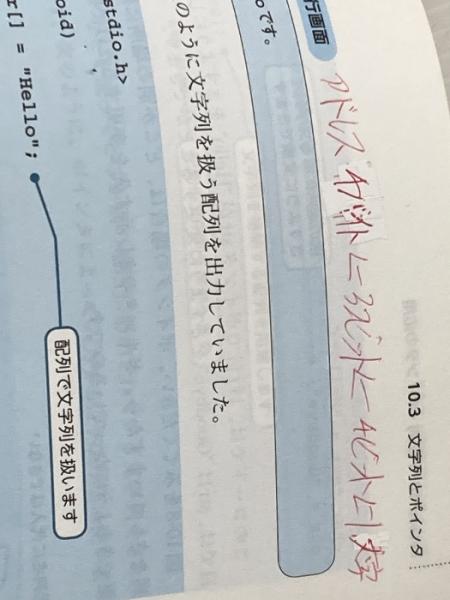 10.3 文字列とポインタ
アドレス 4バイト=32ビット= 4ビット=1文字
行画面
oです。
のように文字列を扱う配列を出力していました。
stdio.h>
oid)
r[] = "Hello";
配列で文字列を扱います